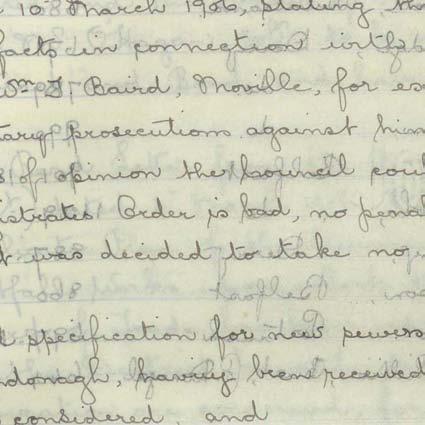 10 March 1906, stating th
facts in connection with
Wm J Baird, Moville, for es
tary prosecutions against him
of opinion the Council cou
strates' Order is bad, no penal
t was decided to take no
l specification for new sewers
ndonagh, having been received
considered, and